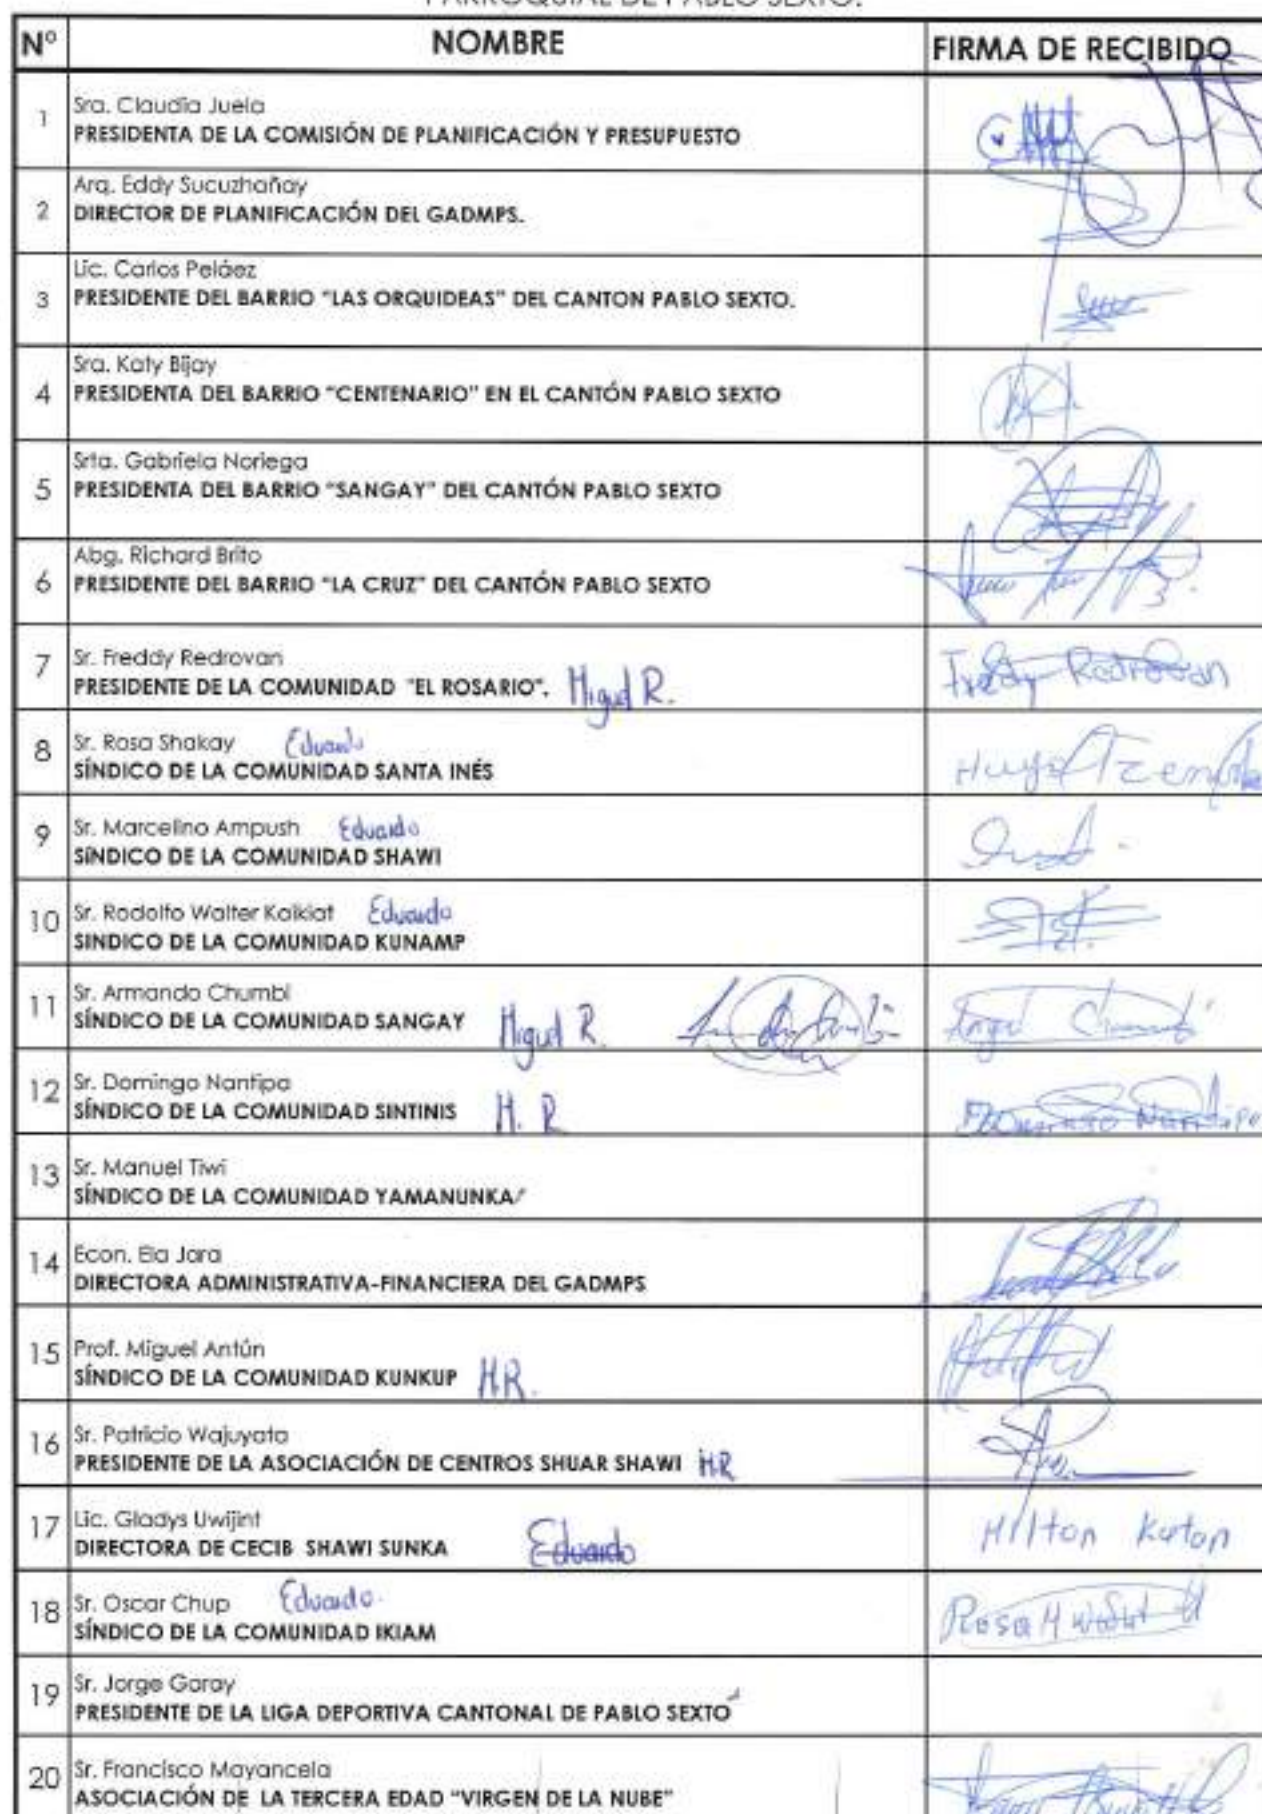 PARROQUIAL DE PABLO SEXTO.
Nº NOMBRE FIRMA DE RECIBIDO
1 Sra. Claudia Juela
PRESIDENTA DE LA COMISIÓN DE PLANIFICACIÓN Y PRESUPUESTO
2 Arq. Eddy Sucuzhañay
DIRECTOR DE PLANIFICACIÓN DEL GADMPS.
3 Lic. Carlos Peláez
PRESIDENTE DEL BARRIO "LAS ORQUIDEAS" DEL CANTON PABLO SEXTO.
4 Sra. Katy Bijay
PRESIDENTA DEL BARRIO "CENTENARIO" EN EL CANTÓN PABLO SEXTO
5 Srta. Gabriela Noriega
PRESIDENTA DEL BARRIO "SANGAY" DEL CANTÓN PABLO SEXTO
6 Abg. Richard Brito
PRESIDENTE DEL BARRIO "LA CRUZ" DEL CANTÓN PABLO SEXTO
7 Sr. Freddy Redrovan
PRESIDENTE DE LA COMUNIDAD "EL ROSARIO". Miguel R. Freddy Redrovan
8 Sr. Rosa Shakay Eduardo
SÍNDICO DE LA COMUNIDAD SANTA INÉS Hugo
9 Sr. Marcelino Ampush Eduardo
SÍNDICO DE LA COMUNIDAD SHAWI
10 Sr. Rodolfo Walter Kaikiat Eduardo
SINDICO DE LA COMUNIDAD KUNAMP
11 Sr. Armando Chumbi
SÍNDICO DE LA COMUNIDAD SANGAY Miguel R. Angel
12 Sr. Domingo Nantipa
SÍNDICO DE LA COMUNIDAD SINTINIS M. R Domingo Nantipa
13 Sr. Manuel Tiwi
SÍNDICO DE LA COMUNIDAD YAMANUNKA
14 Econ. Ela Jara
DIRECTORA ADMINISTRATIVA-FINANCIERA DEL GADMPS
15 Prof. Miguel Antún
SÍNDICO DE LA COMUNIDAD KUNKUP M.R.
16 Sr. Patricio Wajuyata
PRESIDENTE DE LA ASOCIACIÓN DE CENTROS SHUAR SHAWI M.R
17 Lic. Gladys Uwijint
DIRECTORA DE CECIB SHAWI SUNKA Eduardo Hilton Katan
18 Sr. Oscar Chup Eduardo.
SÍNDICO DE LA COMUNIDAD IKIAM Rosa
19 Sr. Jorge Garay
PRESIDENTE DE LA LIGA DEPORTIVA CANTONAL DE PABLO SEXTO
20 Sr. Francisco Mayancela
ASOCIACIÓN DE LA TERCERA EDAD "VIRGEN DE LA NUBE"